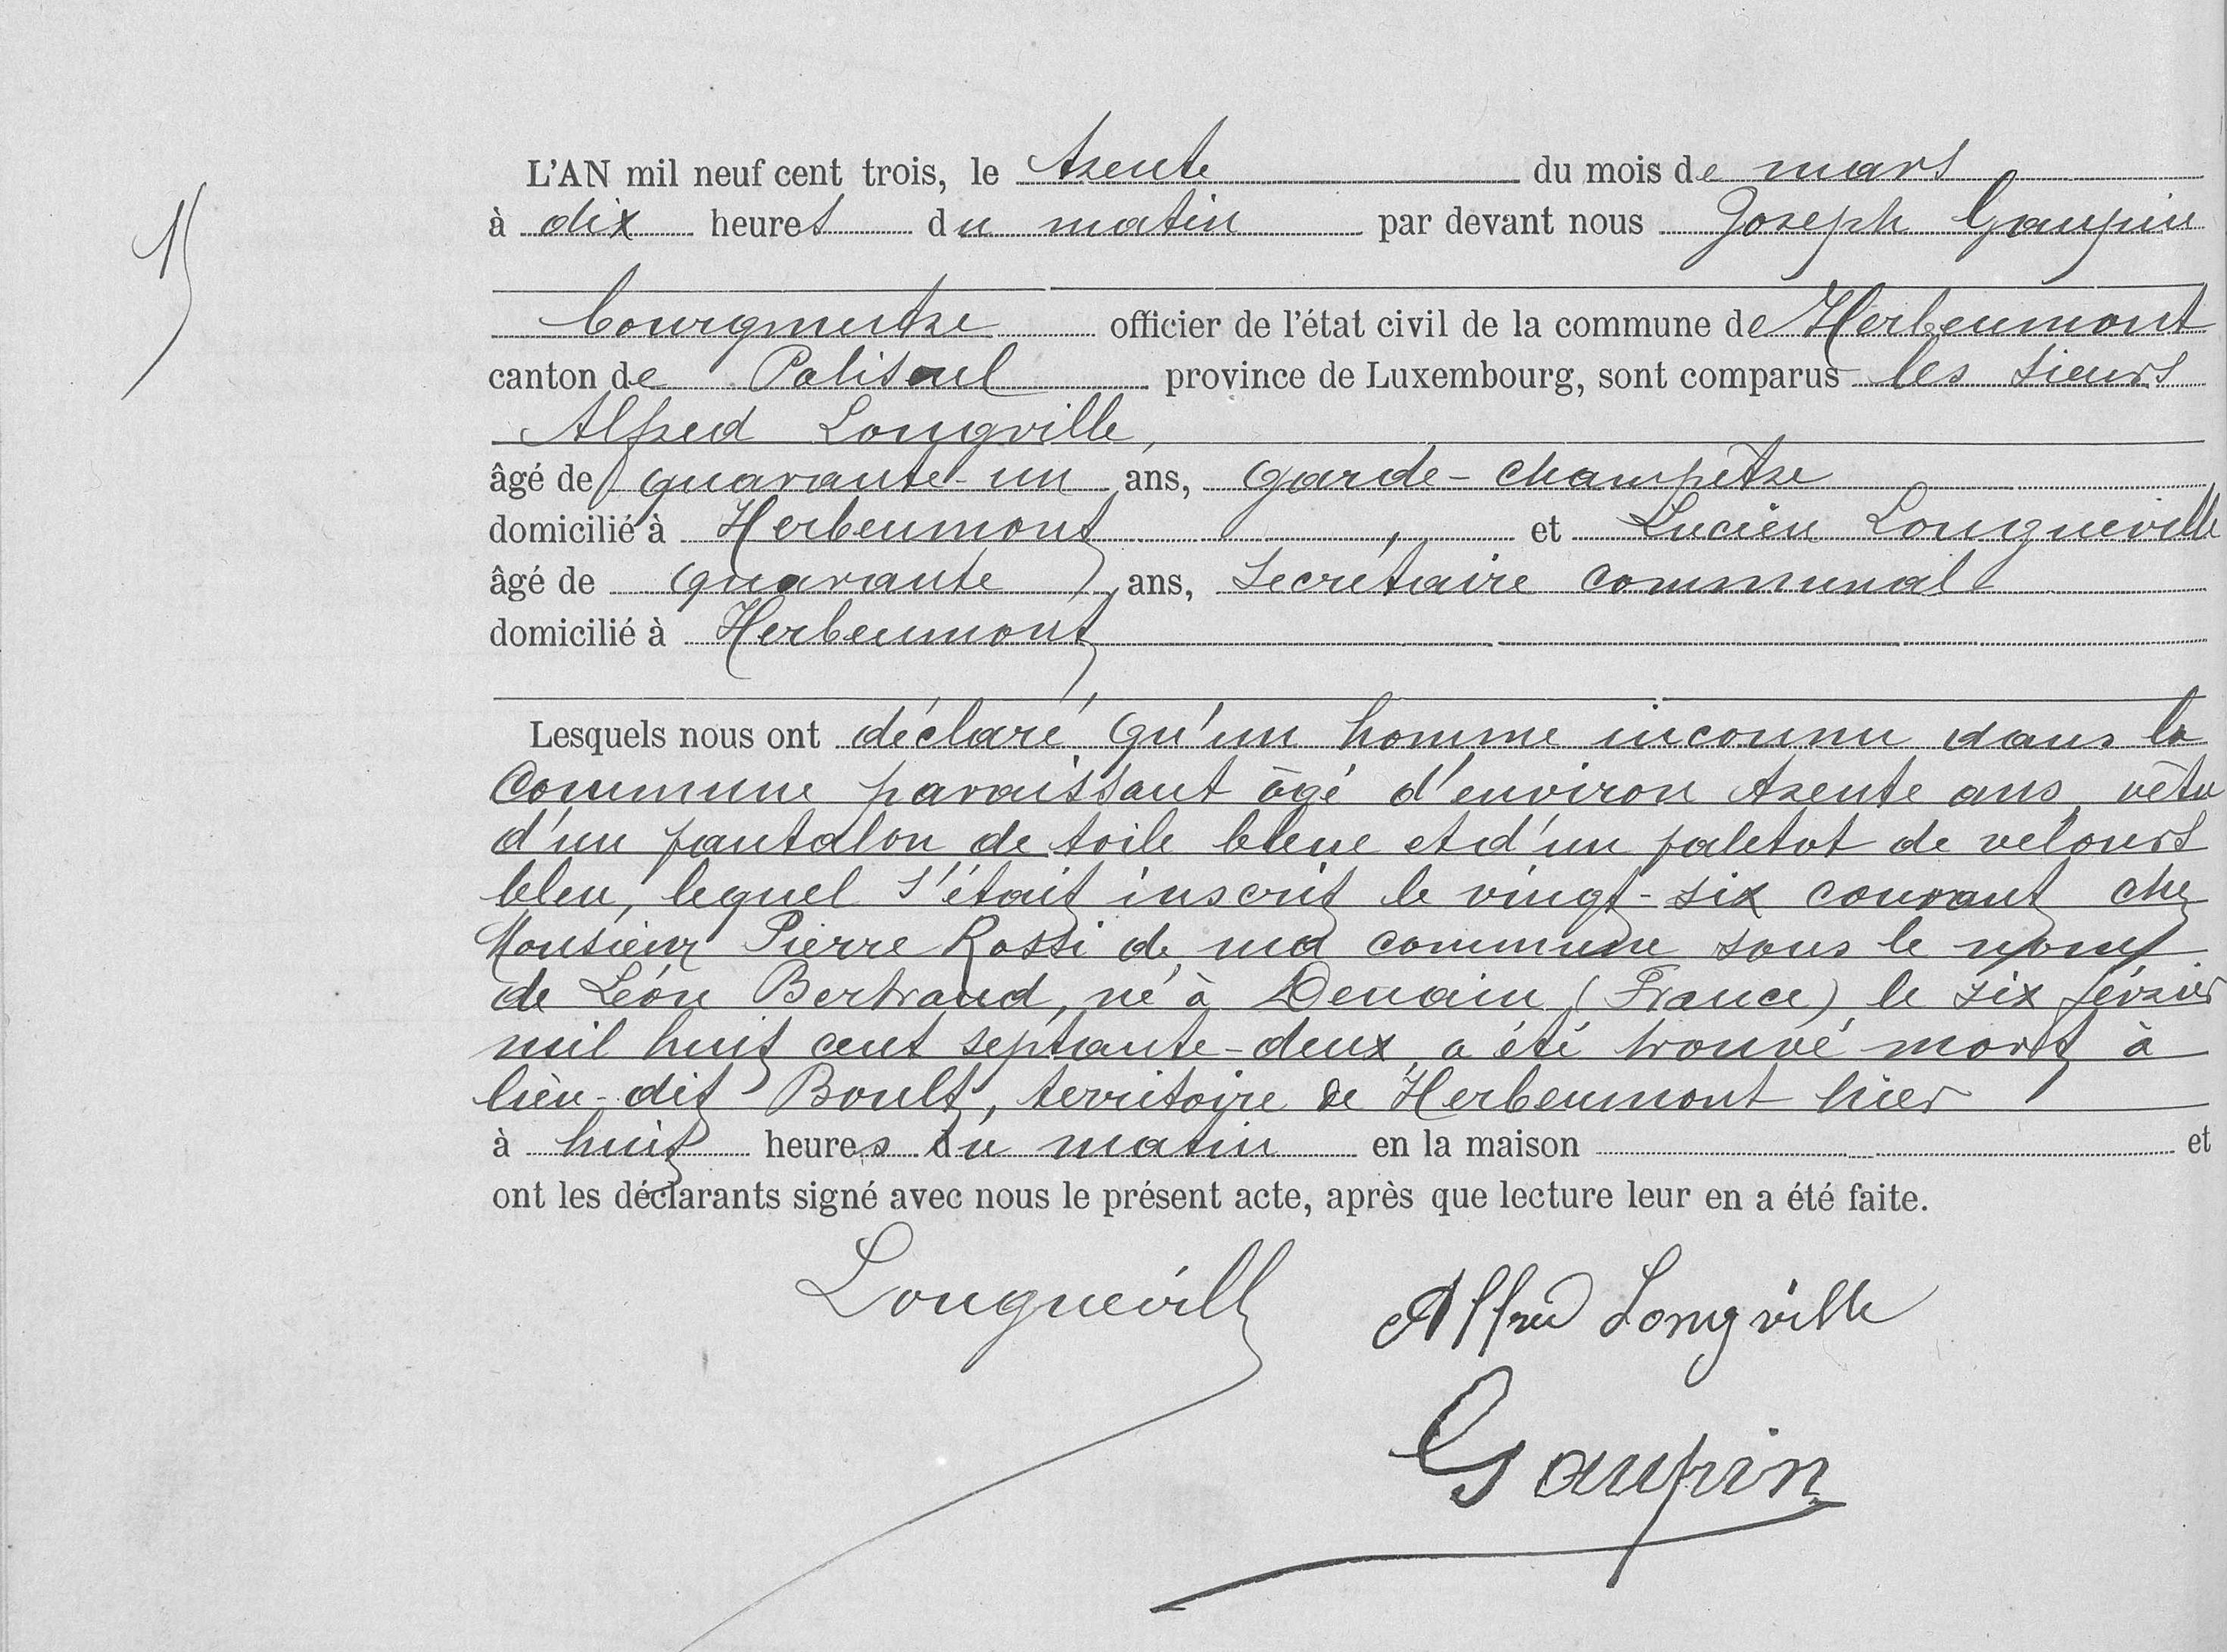 L'AN mil neuf cent trois, le trente du mois de mars
à dix heures du matin par devant nous Joseph Gaupin
bourgmestre officier de l'état civil de la commune de Herbeumont
canton de Paliseul province de Luxembourg, sont comparus les sieurs
Alfred Longville,
âgé de quarante-un ans, garde-champêtre
domicilié à Herbeumont, et Lucien Longueville
âgé de quarante ans, secrétaire communal
domicilié à Herbeumont
Lesquels nous ont déclaré qu'un homme inconnu dans la
commune paraissant âgé d'environ trente ans, vêtu
d'un pantalon de toile bleue et d'un paletot de velours
bleu, lequel s'était inscrit le vingt-six courant chez
Monsieur Pierre Rossi de ma commune sous le nom
de Léon Bertrand, né à Denain (France) le six février
mil huit cent septante-deux, a été trouvé mort à
lieu-dit Boult, territoire de Herbeumont hier
à huit heures du matin en la maison et
ont les déclarants signé avec nous le présent acte, après que lecture leur en a été faite.
Longueville Alfred Longville
Gaupin